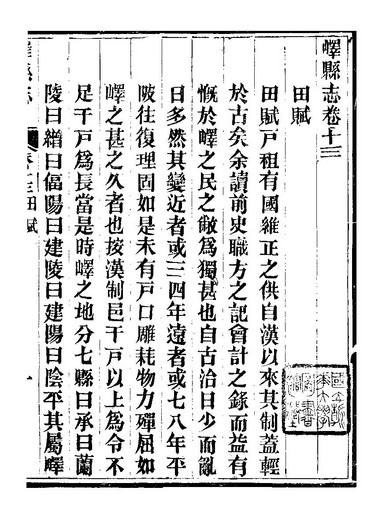 嶧縣志卷十三
田賦
田賦戸租有國維正之供自漢以來其制蓋輕
於古矣余讀前史職方之記會計之錄而益有
慨於嶧之民之敝爲獨甚也自古治日少而亂
日多然其變近者或三四年遠者或七八年平
陂往復理固如是未有戸口雕耗物力殫屈如
嶧之甚之久者也按漢制邑千戸以上爲令不
足千戸爲長當是時嶧之地分七縣曰承曰蘭
陵曰繒曰偪陽曰建陵曰建陽曰陰平其屬嶧
嶧縣志
卷十三田賦
一